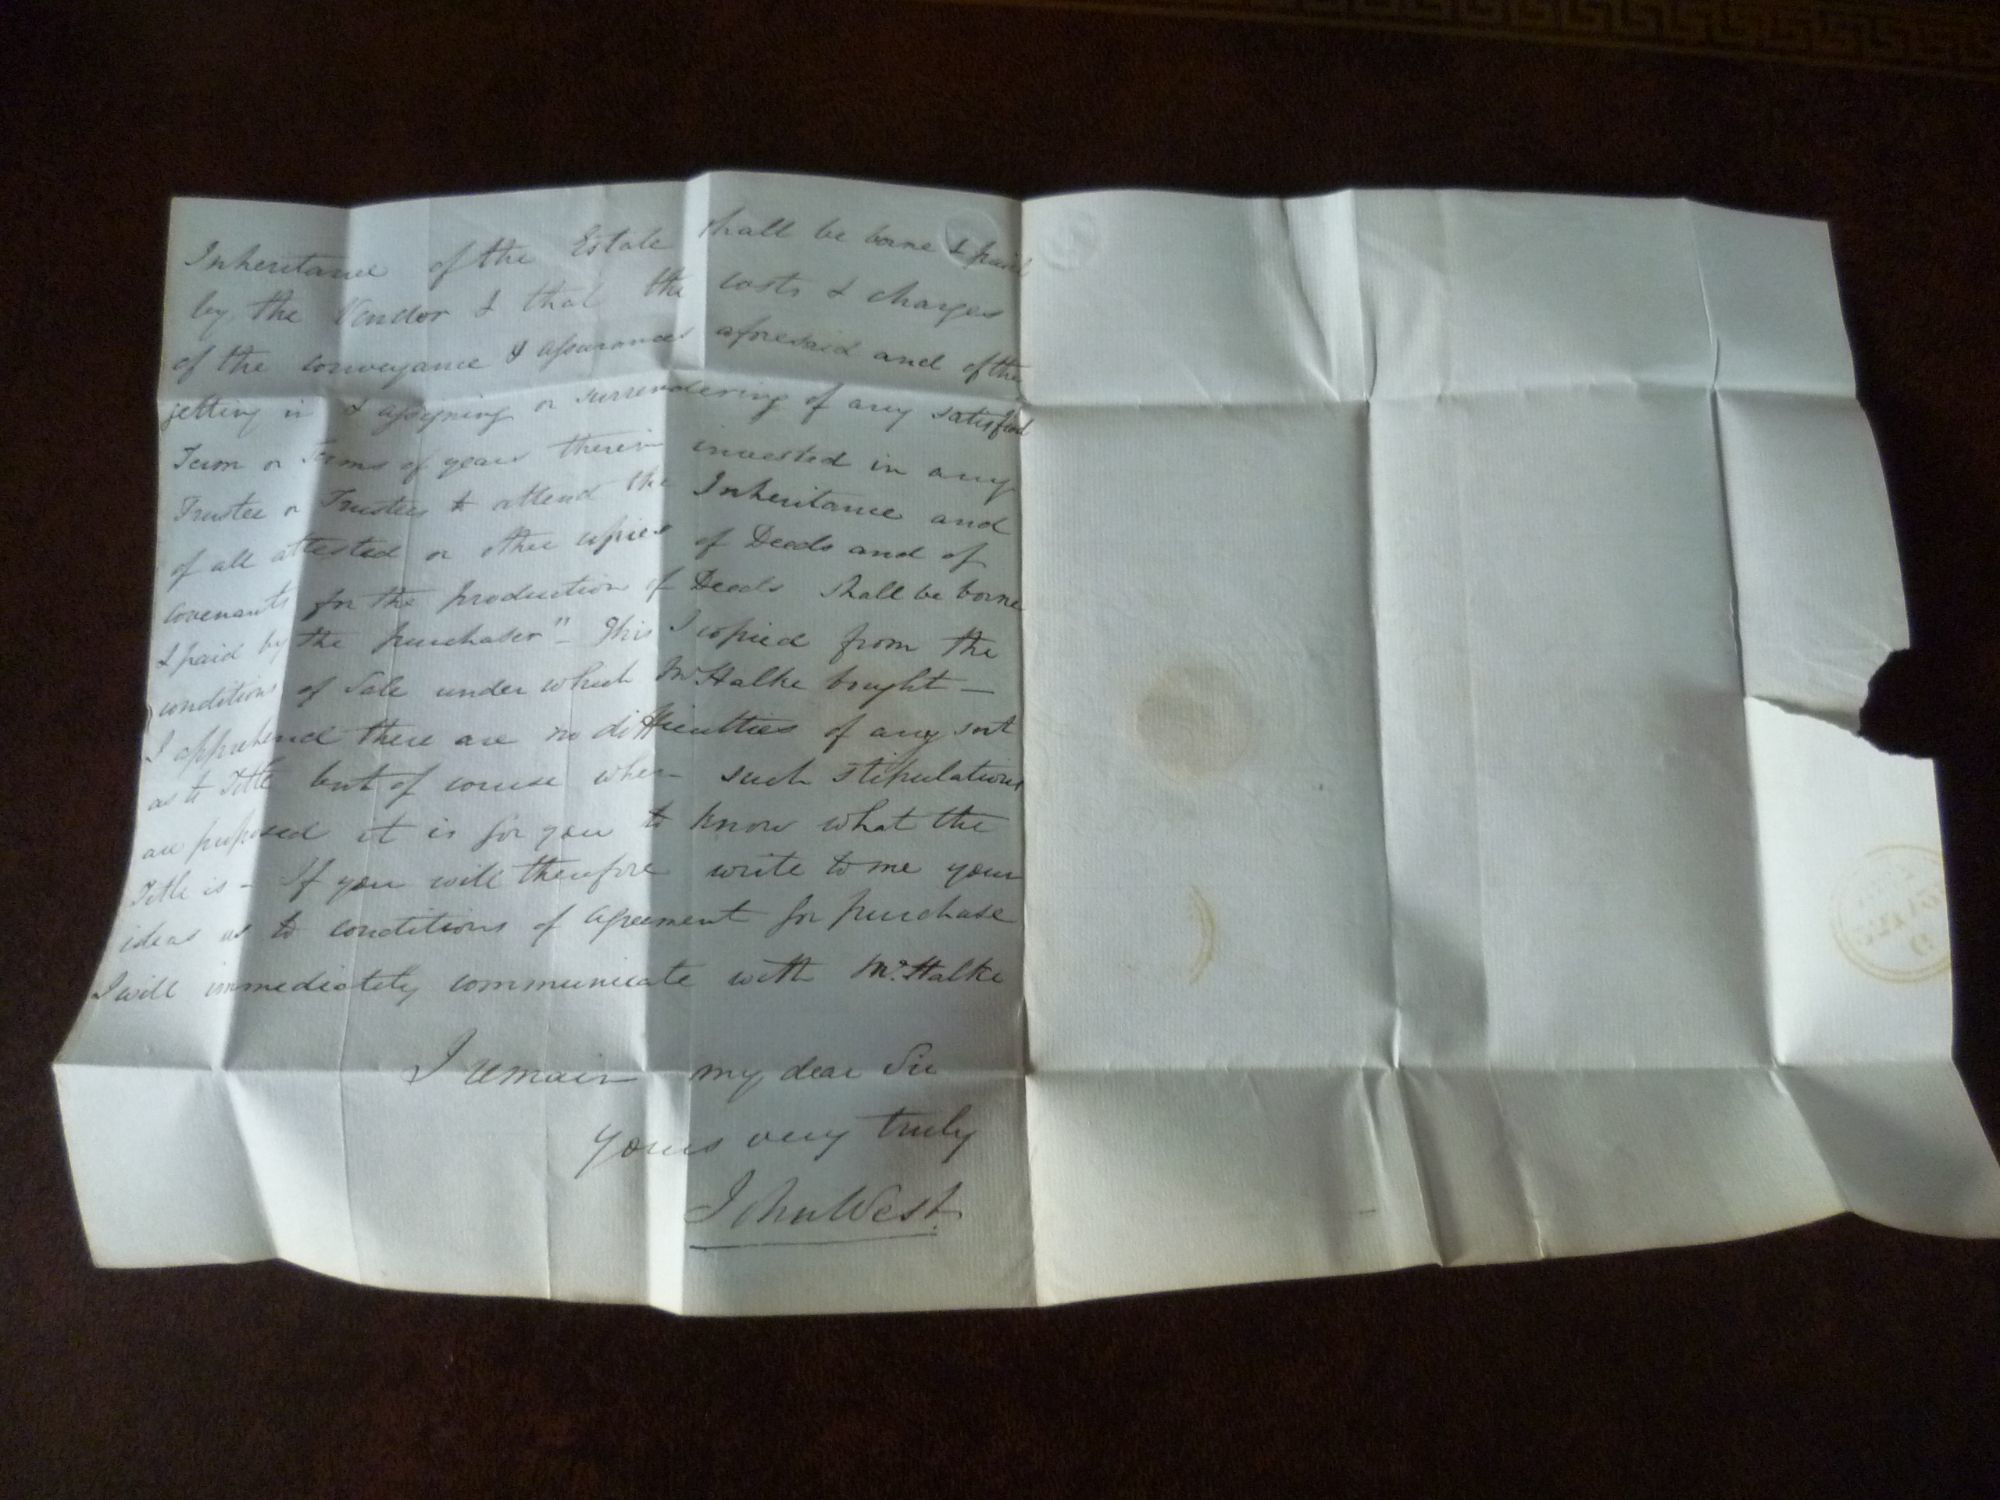 Inheritance of the Estate shall be borne & paid
by the Vendor & that the costs & charges
of the conveyance & assurances aforesaid and of the
getting in & assigning or surrendering of any satisfied
Term or Terms of years therein invested in any
Trustee or Trustees to attend the Inheritance and
of all attested or other copies of Deeds and of
covenants for the production of Deeds shall be borne
& paid by the purchaser" - This I copied from the
conditions of Sale under which Mr Halke bought -
I apprehend there are no difficulties of any sort
as to Title but of course when such stipulations
are proposed it is for you to know what the
Title is - If you will therefore write to me your
ideas as to conditions of Agreement for purchase
I will immediately communicate with Mr. Halke
I remain my dear Sir
Yours very truly
John West.